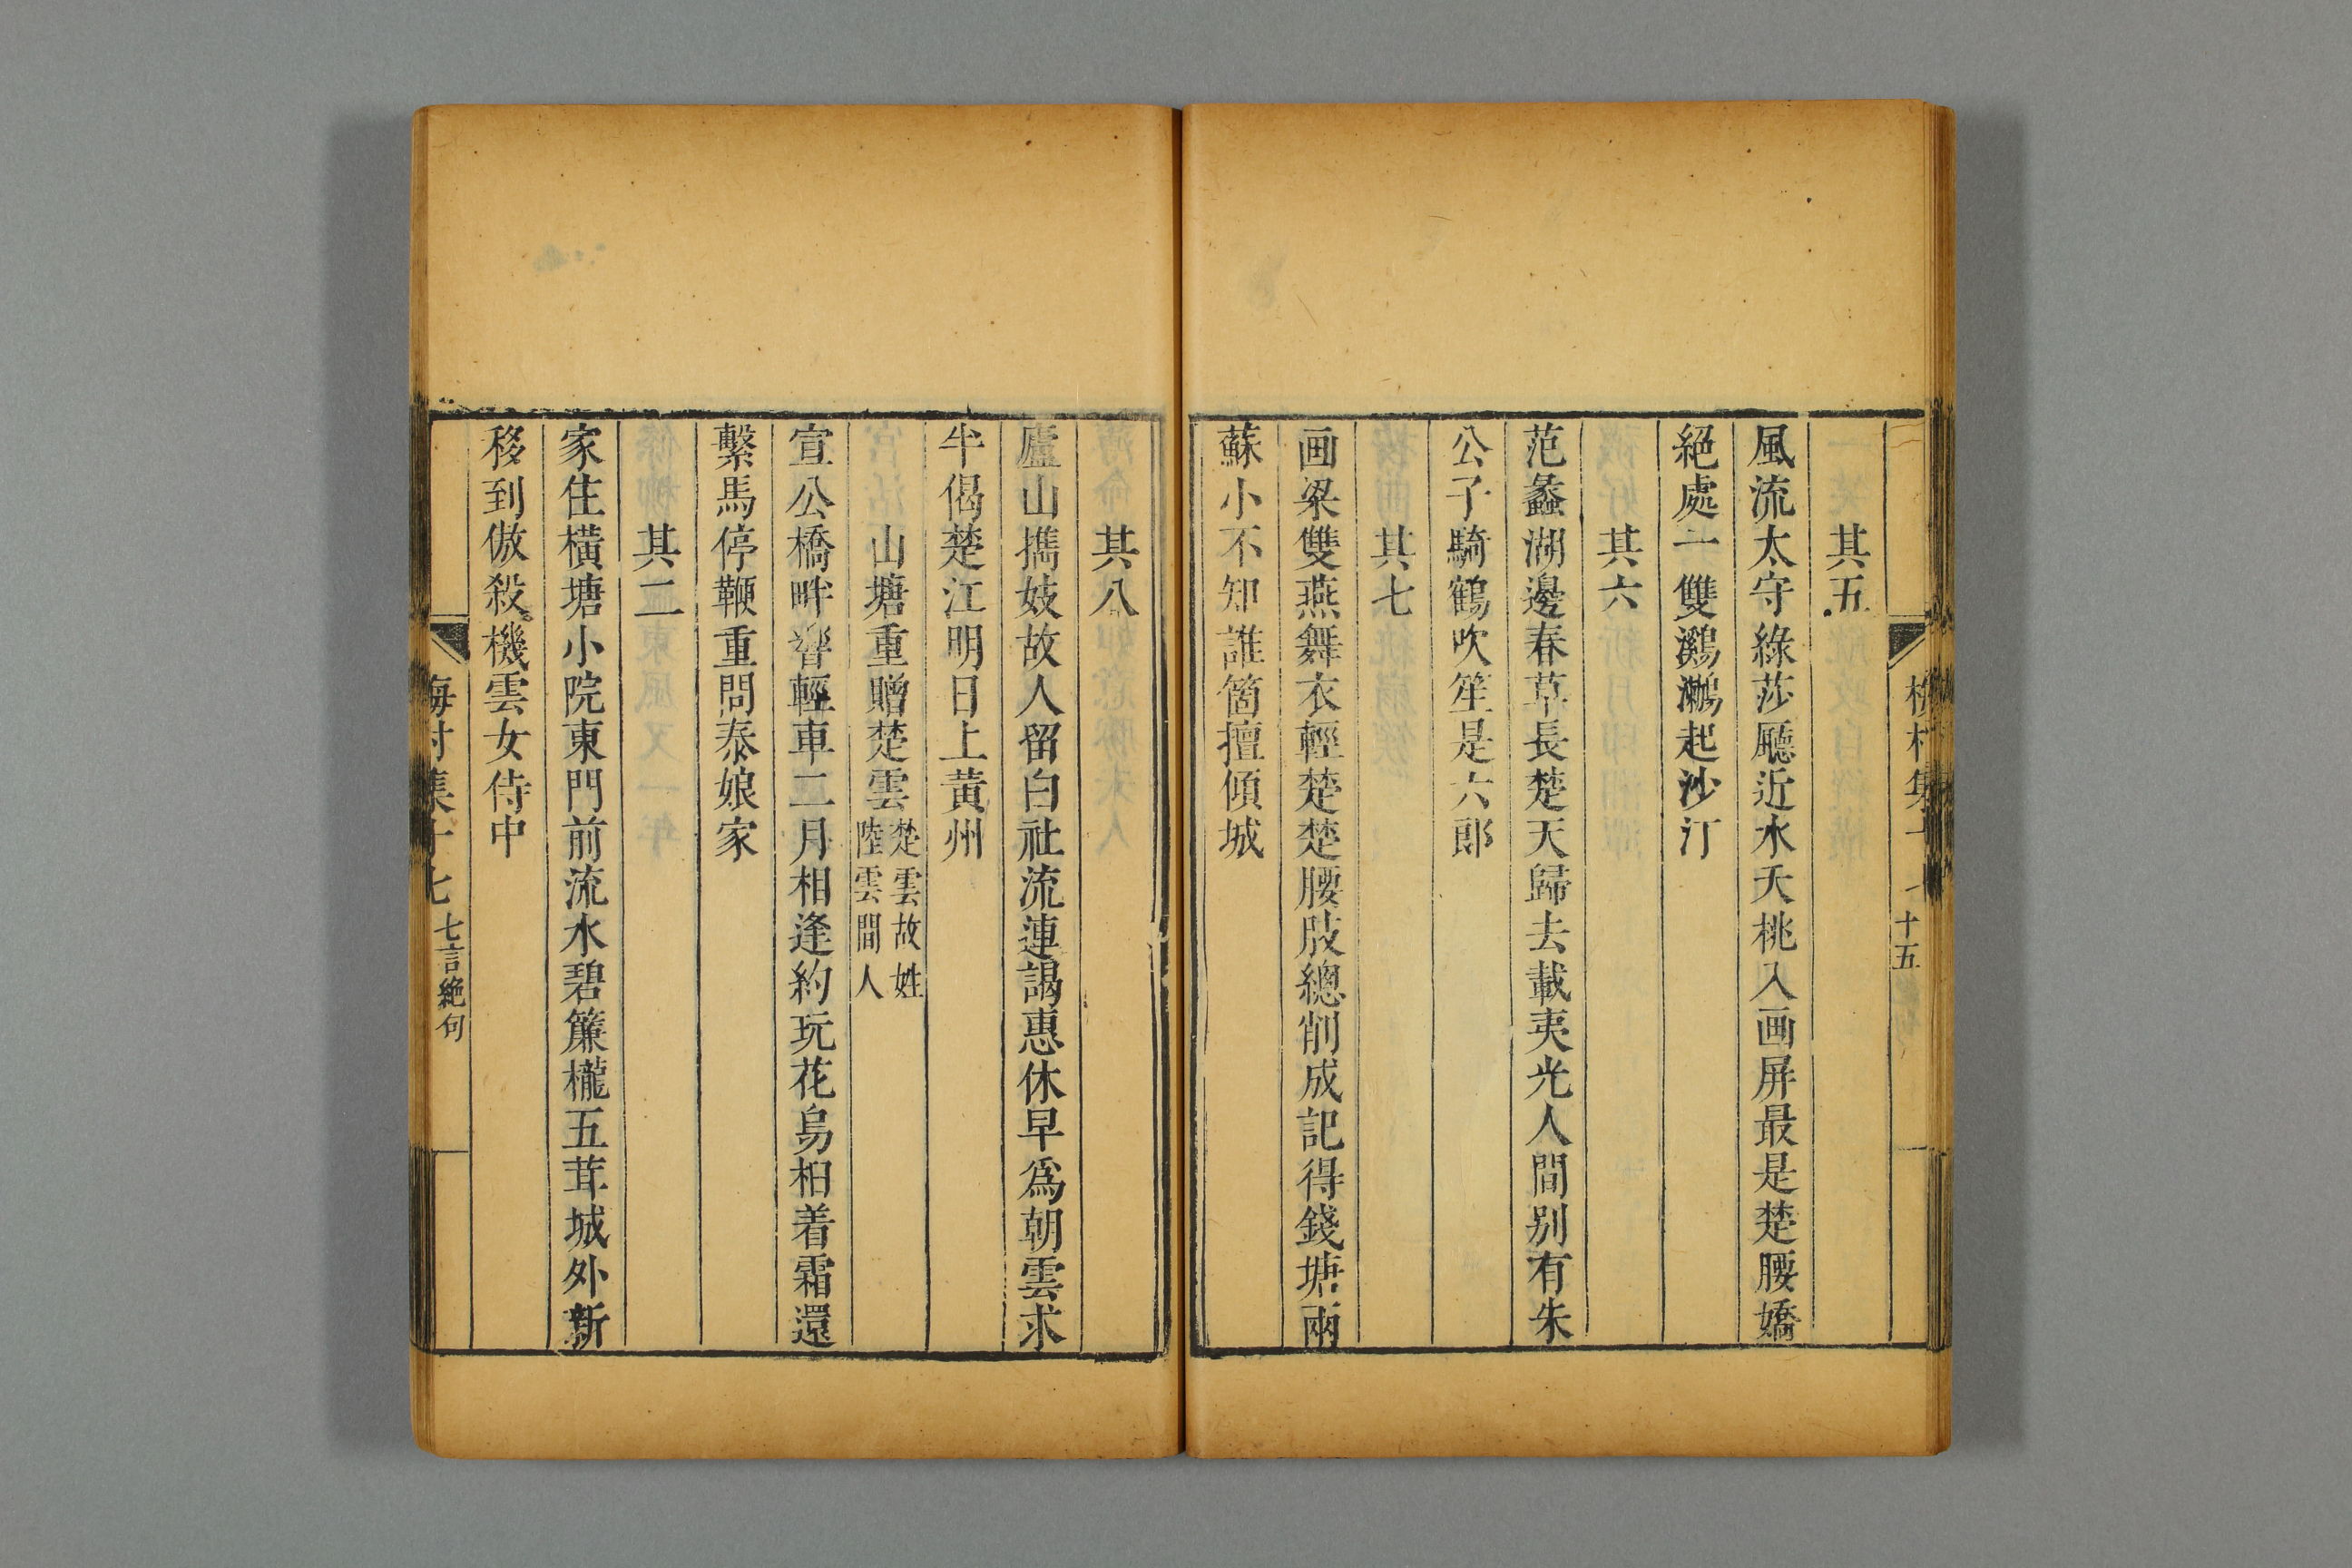 十五
其五
風流太守綠莎廳近水夭桃入画屏最是楚腰嬌
絕處一雙鸂鶒起沙汀
其六
范蠡湖邊春草長楚天歸去載夷光人間别有朱
公子騎鶴吹笙是六郎
其七
画梁雙燕舞衣輕楚楚腰肢總削成記得錢塘兩
蘇小不知誰箇擅傾城
其八
廬山擕妓故人留白社流連謁惠休早爲朝雲求
半偈楚江明日上黃州
山塘重贈楚雲楚雲故姓
陸雲間人
宣公橋畔響輕車二月相逢約玩花烏桕着霜還
繫馬停鞭重問泰娘家
其二
家住橫塘小院東門前流水碧簾櫳五茸城外新
移到傲殺機雲女侍中
梅村集十七 七言絕句